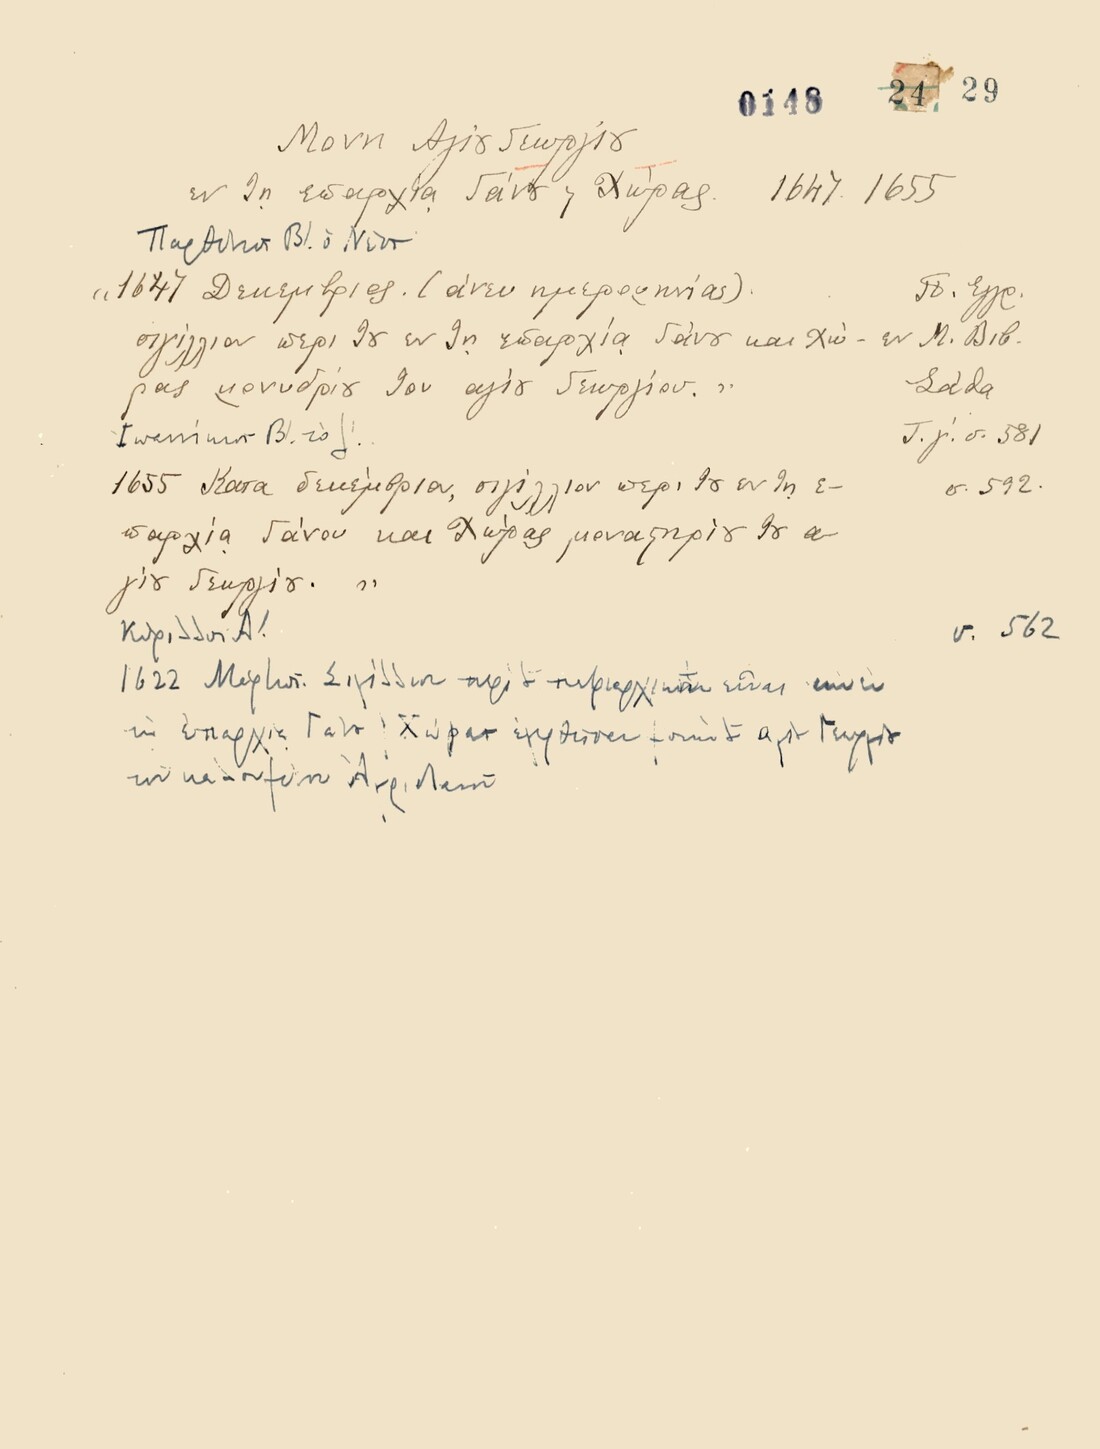 0148 24 29
Μονη Αγίȣ Γεωργίȣ
εν τη επαρχία Γάνȣ ϗ Χώρας. 1647. 1655
Παρθένιος Β! ὁ Νέος
"1647 Δεκεμβριος. (άνευ ημερομηνίας). Π. Εγγρ.
σιγίλλιον περι τȣ εν τη επαρχία Γάνȣ και Χώ- εν Μ. Βιβ.
ρας μονυδρίȣ του αγίȣ Γεωργίου. " Σάθα
Ιωαννίκιος Β! τὸ Τ. γ'. σ. 581
1655 Κατα δεκέμβριον, σιγίλλιον περι τȣ εν τη ε- σ. 592.
παρχία Γάνου και Χώρας μοναστηρίȣ τȣ α-
γίȣ Γεωργίȣ. "
Κύριλλος Α! σ. 562
1622 Μάρτιος. Σιγίλλιον περὶ τȣ πατριαρχικὴν εἶναι τὴν ἐν
τῇ ἐπαρχίᾳ Γάνȣ Χώρας μονὴν τȣ ἁγίȣ Γεωργίȣ
τοῦ καλουμένου